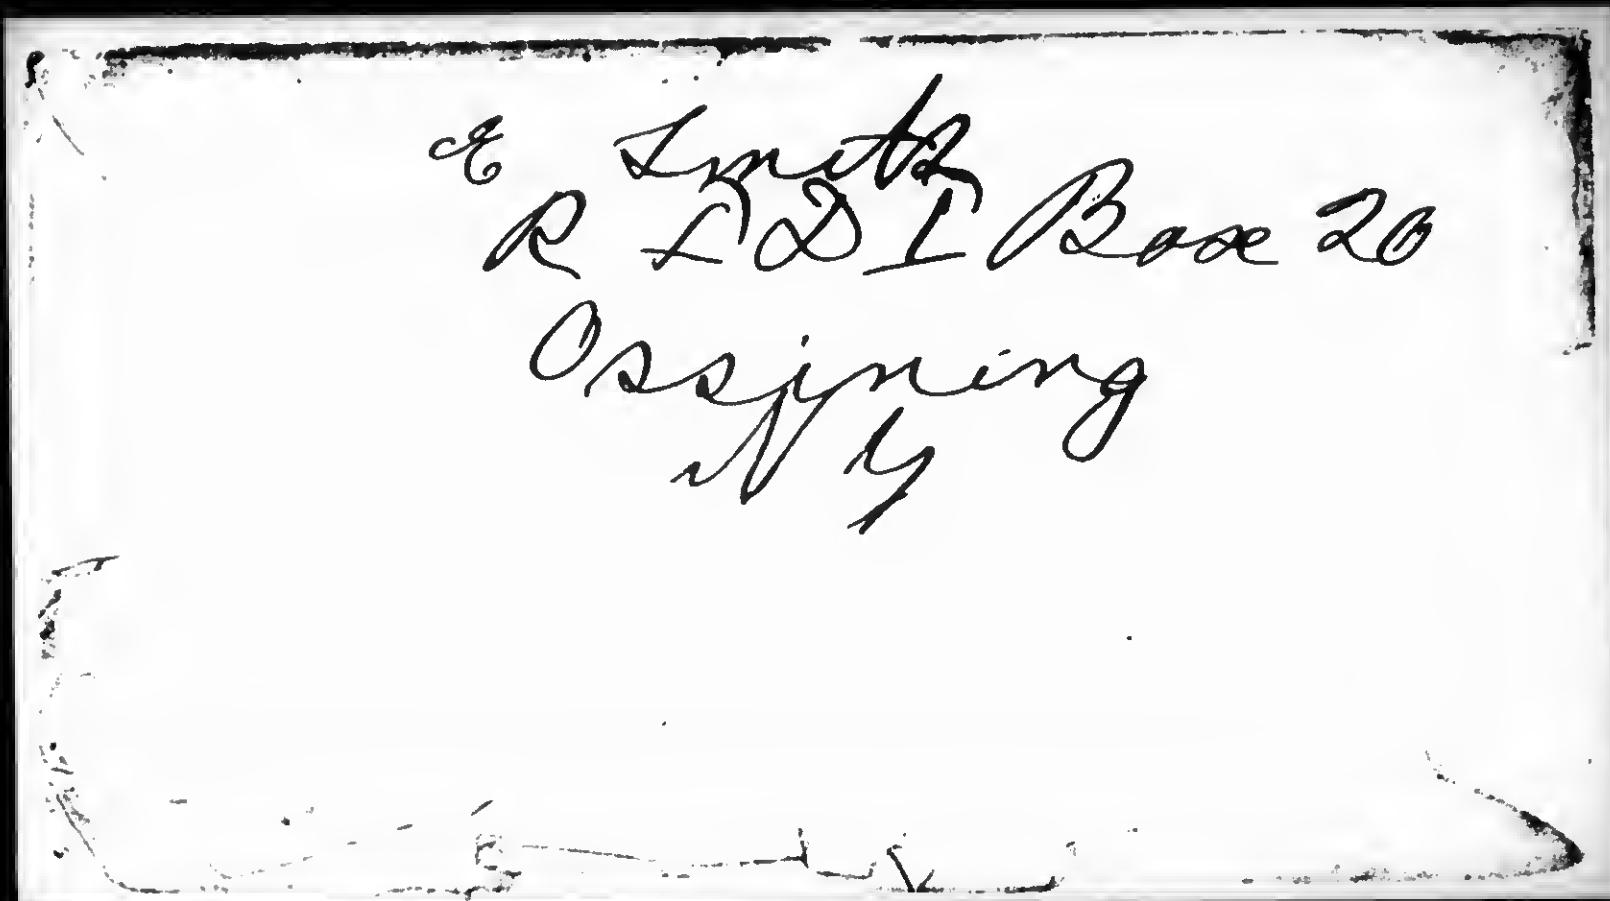 E Smith
R F D 1 Box 20
Ossining
N Y